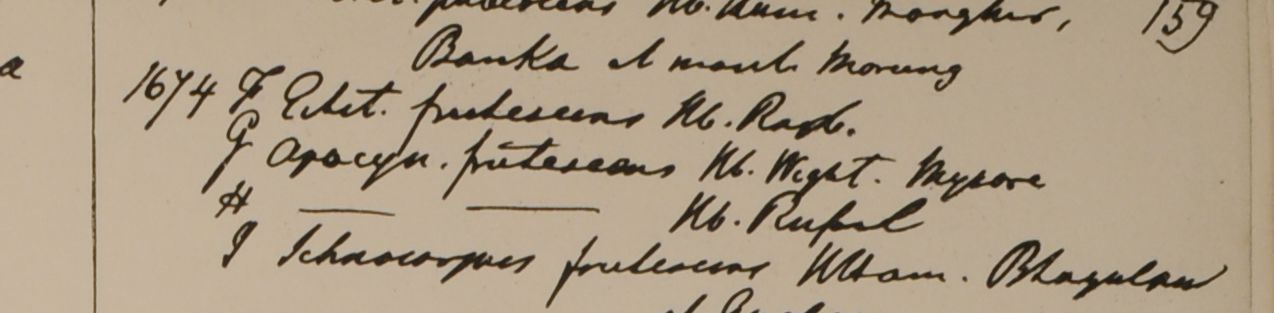 pubescens Hb. Ham. Monghir, 159
a
Banka et mont. Morung
1674 F Echit. frutescens Hb. Roxb.
G Apocyn. frutescens Hb. Wight. Mysore
H — — Hb. Russel
I Ichnocarpus frutescens HHam. Bhagulpur